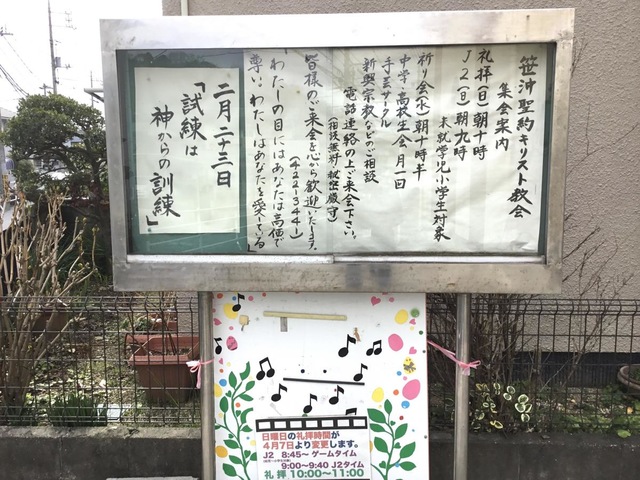 笹沖聖約キリスト教会
集会案内
礼拝(日)朝十時
J2(日)朝九時
未就学児小学生対象
祈り会(水)朝十時半
中学・高校生会月一回
手芸サークル
新興宗教などのご相談
電話連絡の上ご来会下さい。
(相談無料・秘密厳守)
皆様のご来会を心から歓迎いたします。
(422-3441)
「わたしの目にはあなたは高価で
尊い。わたしはあなたを愛している」
二月二十三日
「試練は
神からの訓練」
日曜日の礼拝時間が
4月7日より変更します。
J2 8:45〜ゲームタイム
9:00〜9:40 J2タイム
礼拝 10:00〜11:00